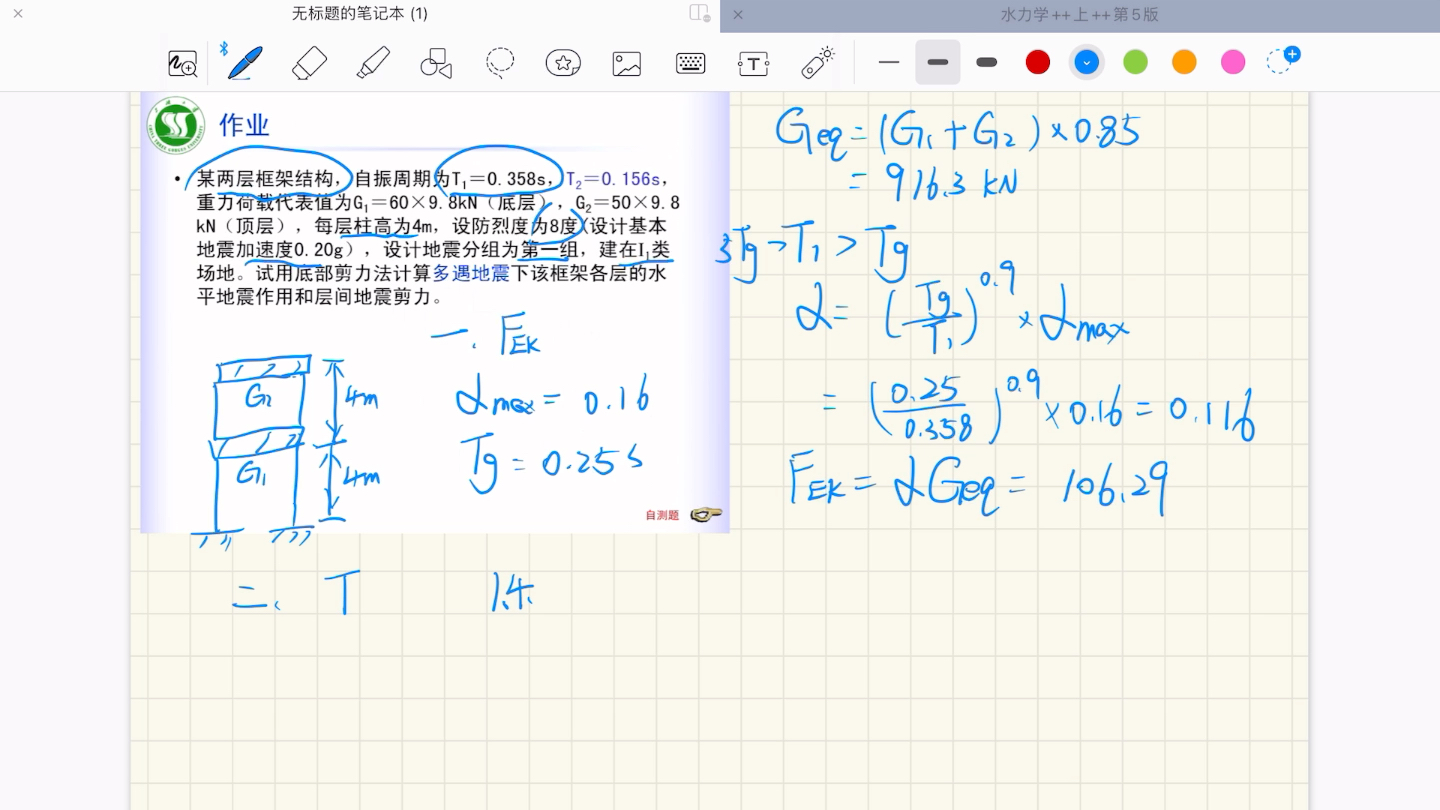 无标题的笔记本 (1)
水力学++上++第5版
作业
• 某两层框架结构，自振周期为T₁＝0.358s，T₂＝0.156s，
重力荷载代表值为G₁＝60×9.8kN（底层），G₂＝50×9.8
kN（顶层），每层柱高为4m，设防烈度为8度(设计基本
地震加速度0.20g），设计地震分组为第一组，建在I₁类
场地。试用底部剪力法计算多遇地震下该框架各层的水
平地震作用和层间地震剪力。
一. F_EK
α_max = 0.16
Tg = 0.25s
G₂
4m
G₁
4m
自测题
二、 T 1.4
Geq = (G₁+G₂)×0.85
= 916.3 kN
5Tg > T₁ > Tg
α = (Tg/T₁)^0.9 × α_max
= (0.25/0.358)^0.9 × 0.16 = 0.116
F_EK = αGeq = 106.29